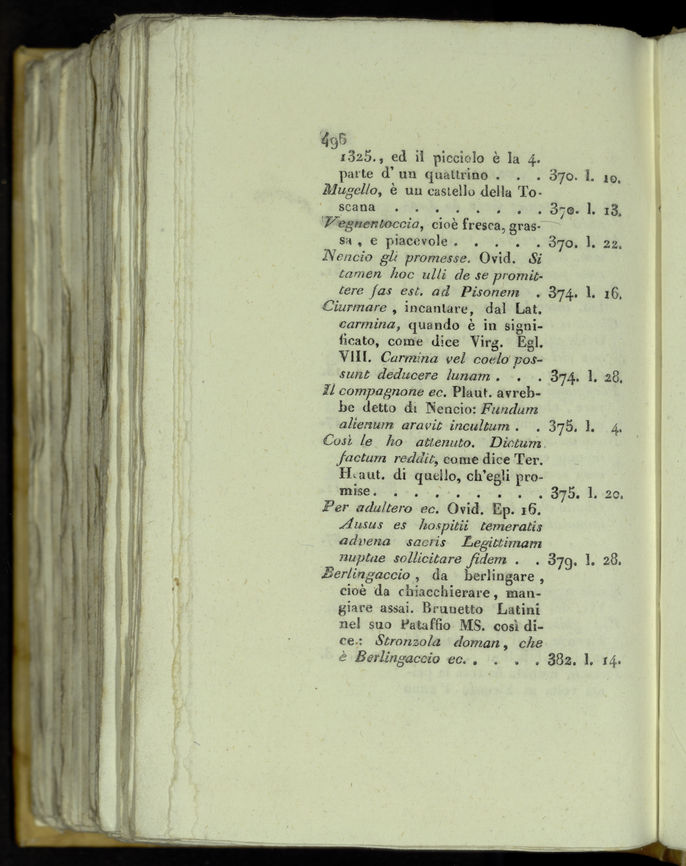 496
1325., ed il picciolo è la 4.
parte d' un quattrino . . . 370. l. 10.
Mugello, è un castello della To-
scana . . . . . . . . 370. l. 13.
Vegnentoccia, cioè fresca, gras-
sa, e piacevole . . . . . 370. l. 22.
Nencio gli promesse. Ovid. Si
tamen hoc ulli de se promit-
tere fas est. ad Pisonem . 374. l. 16.
Ciurmare, incantare, dal Lat.
carmina, quando è in signi-
ficato, come dice Virg. Egl.
VIII. Carmina vel coelo pos-
sunt deducere lunam . . . 374. l. 28.
Il compagnone ec. Plaut. avreb-
be detto di Nencio: Fundum
alienum aravit incultum . . 375. l. 4.
Così le ho attenuto. Dictum
factum reddit, come dice Ter.
Heaut. di quello, ch'egli pro-
mise . . . . . . . . . 375. l. 20.
Per adultero ec. Ovid. Ep. 16.
Ausus es hospitii temeratis
advena sacris Legittimam
nuptae sollicitare fidem . . 379. l. 28.
Berlingaccio, da berlingare,
cioè da chiacchierare, man-
giare assai. Brunetto Latini
nel suo Pataffio MS. così di-
ce.: Stronzola doman, che
è Berlingaccio ec. . . . . 382. l. 14.